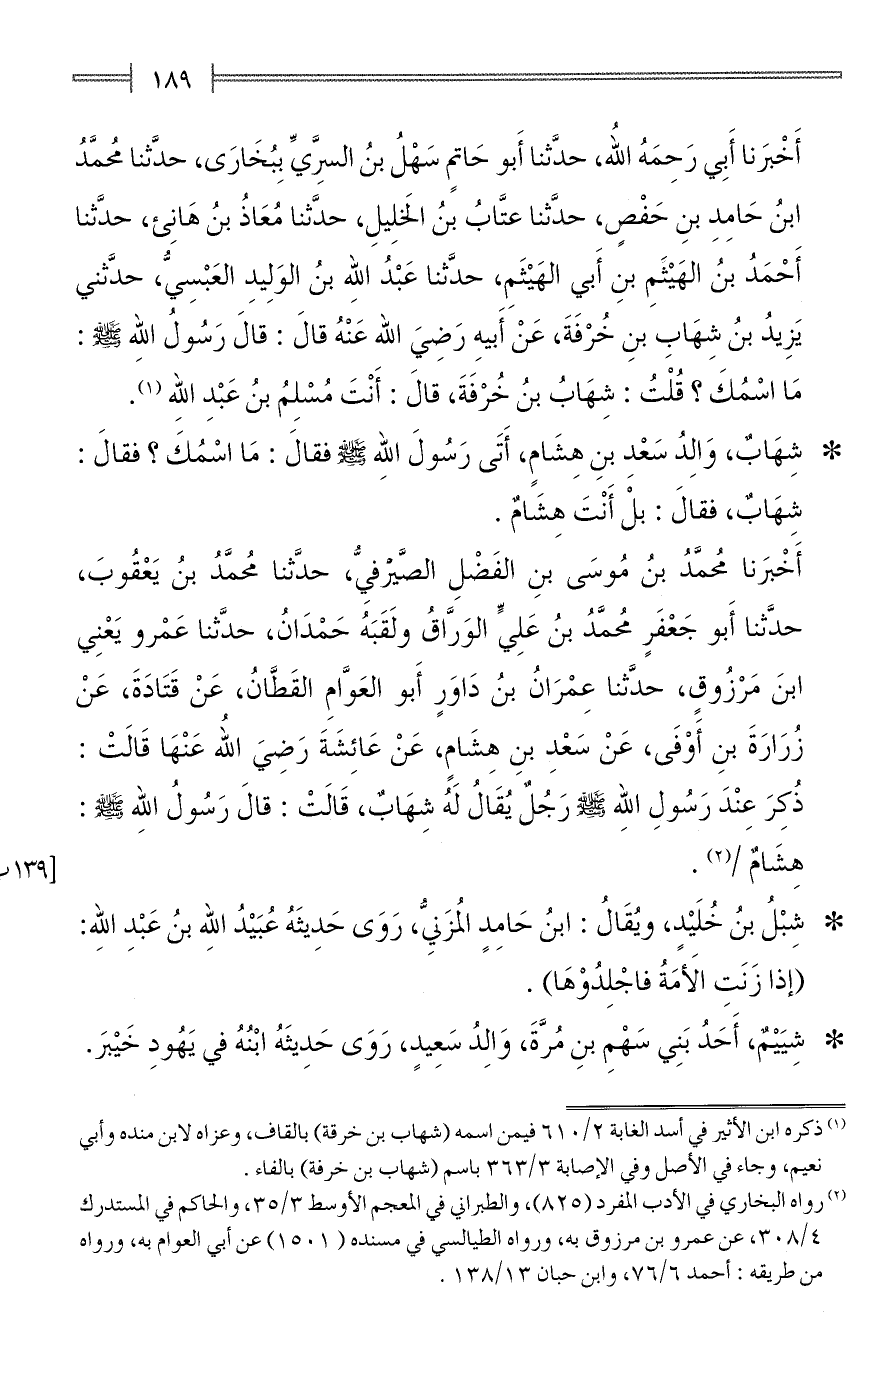 ١٨٩
أَخْبَرَنا أَبي رَحِمَهُ اللهُ، حدَّثنا أَبو حَاتمٍ سَهْلُ بنُ السريِّ بِبُخَارَى، حدَّثنا محُمَّدُ
ابنُ حَامِدِ بنِ حَفْصٍ، حدَّثنا عتَّابُ بنُ الخَلِيلِ، حدَّثنا مُعَاذُ بنُ هَانِئ، حدَّثنا
أَحْمَدُ بنُ الهَيْثَمِ بنِ أَبي الهَيْثَمِ، حدَّثنا عَبْدُ اللهِ بنُ الوَلِيدِ العَبْسِيُّ، حدَّثني
يَزِيدُ بنُ شِهَابِ بنِ خُرْفَةَ، عَنْ أَبيهِ رَضِيَ الله عَنْهُ قالَ : قالَ رَسُولُ اللهِ ﷺ :
مَا اسْمُكَ ؟ قُلْتُ : شِهَابُ بنُ خُرْفَةَ، قالَ : أَنْتَ مُسْلِمُ بنُ عَبْدِ اللهِ (١).
* شِهَابٌ، وَالِدُ سَعْدِ بنِ هِشَامٍ، أَتَى رَسُولَ اللهِ ﷺ فقالَ : مَا اسْمُكَ ؟ فقالَ :
شِهَابٌ، فقالَ : بلْ أَنْتَ هِشَامٌ .
أَخْبَرَنا محُمَّدُ بنُ مُوسَى بنِ الفَضْلِ الصَّيْرْفيُّ، حدَّثنا محُمَّدُ بنُ يَعْقُوبَ،
حدَّثنا أَبو جَعْفَرٍ محُمَّدُ بنُ عَليٍّ الوَرَّاقُ ولَقَبَهُ حَمْدَانُ، حدَّثنا عَمْرو يَعْنِي
ابنَ مَرْزُوقٍ، حدَّثنا عِمْرَانُ بنُ دَاوَرٍ أَبو العَوَّامِ القَطَّانُ، عَنْ قَتَادَةَ، عَنْ
زُرَارَةَ بنِ أَوْفَى، عَنْ سَعْدِ بنِ هِشَامٍ، عَنْ عَائِشَةَ رَضِيَ اللهُ عَنْهَا قَالَتْ :
ذُكِرَ عِنْدَ رَسُولِ اللهِ ﷺ رَجُلٌ يُقَالُ لَهُ شِهَابٌ، قَالَتْ : قالَ رَسُولُ اللهِ ﷺ :
هِشَامٌ /(٢) .
[١٣٩
* شِبْلُ بنُ خُلَيْدٍ، ويُقَالُ : ابنُ حَامِدٍ المُزَنيُّ، رَوَى حَدِيثَهُ عُبَيْدُ اللهِ بنُ عَبْدِ اللهِ:
(إذا زَنَتِ الأَمَةُ فاجْلِدُوْهَا) .
* شِيَيْمٌ، أَحَدُ بَنِي سَهْمِ بنِ مُرَّةَ، وَالِدُ سَعِيدٍ، رَوَى حَدِيثَهُ ابْنُهُ في يَهُودِ خَيْبَرَ.
(١) ذكره ابن الأثير في أسد الغابة ٢/ ٦١٠ فيمن اسمه (شهاب بن خرقة) بالقاف، وعزاه لابن منده وأبي
نعيم، وجاء في الأصل وفي الإصابة ٣/ ٣٦٣ باسم (شهاب بن خرفة) بالفاء .
(٢) رواه البخاري في الأدب المفرد (٨٢٥)، والطبراني في المعجم الأوسط ٣/ ٣٥، والحاكم في المستدرك
٤/ ٣٠٨، عن عمرو بن مرزوق به، ورواه الطيالسي في مسنده ( ١٥٠١) عن أبي العوام به، ورواه
من طريقه : أحمد ٦/ ٧٦، وابن حبان ١٣/ ١٣٨ .